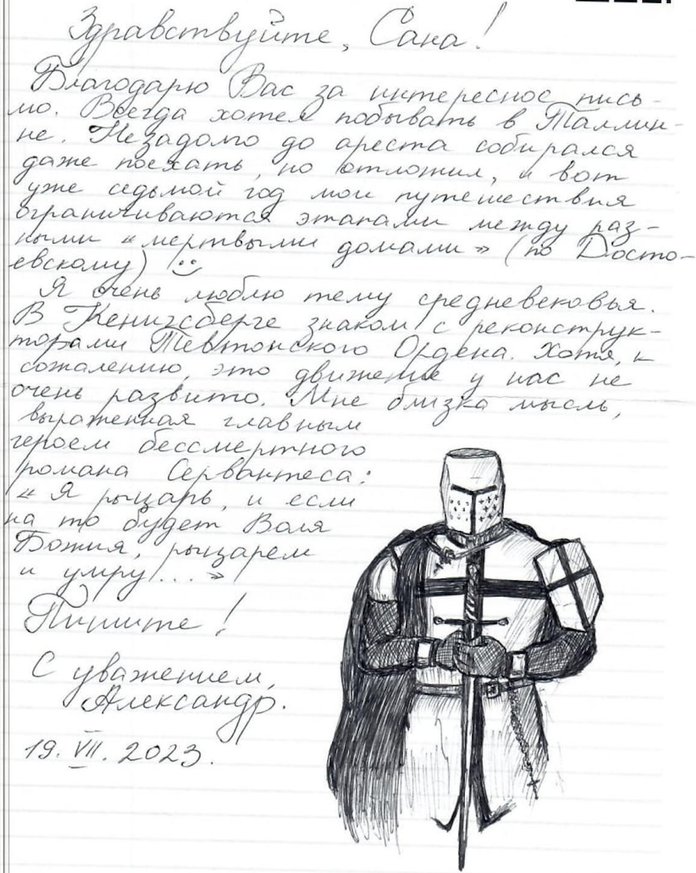 Здравствуйте, Сана!
Благодарю Вас за интересное пись-
мо. Всегда хотел побывать в Таллин-
не. Незадолго до ареста собирался
даже поехать, но отложил, и вот
уже седьмой год мои путешествия
ограничиваются этапами между раз-
ными «мертвыми домами» (по Досто-
евскому)
Я очень люблю тему средневековья.
В Кенигсберге знаком с реконструк-
торами Тевтонского Ордена. Хотя, к
сожалению, это движение у нас не
очень развито. Мне близка мысль,
выраженная главным
героем бессмертного
романа Сервантеса:
«Я рыцарь, и если
на то будет Воля
Божия, рыцарем
и умру...»
Пишите!
С уважением,
Александр.
19. VII. 2023.